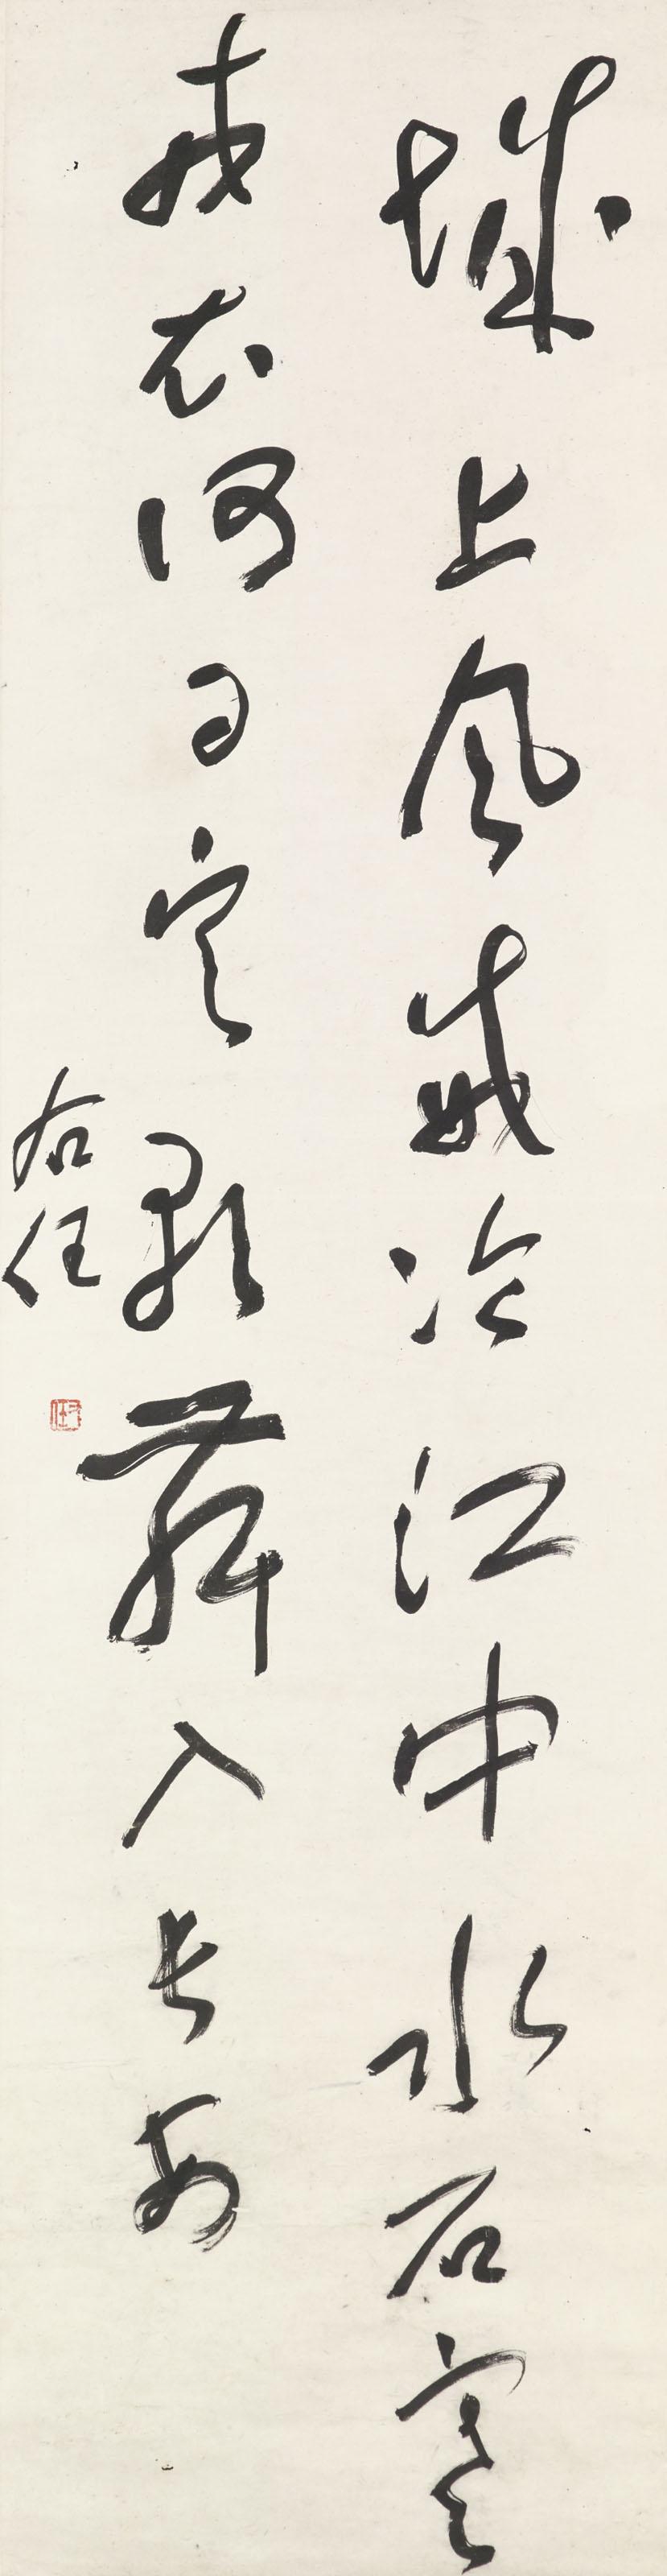 城上風威冷江中水石寒
戎衣何日定歌舞入長安
右任